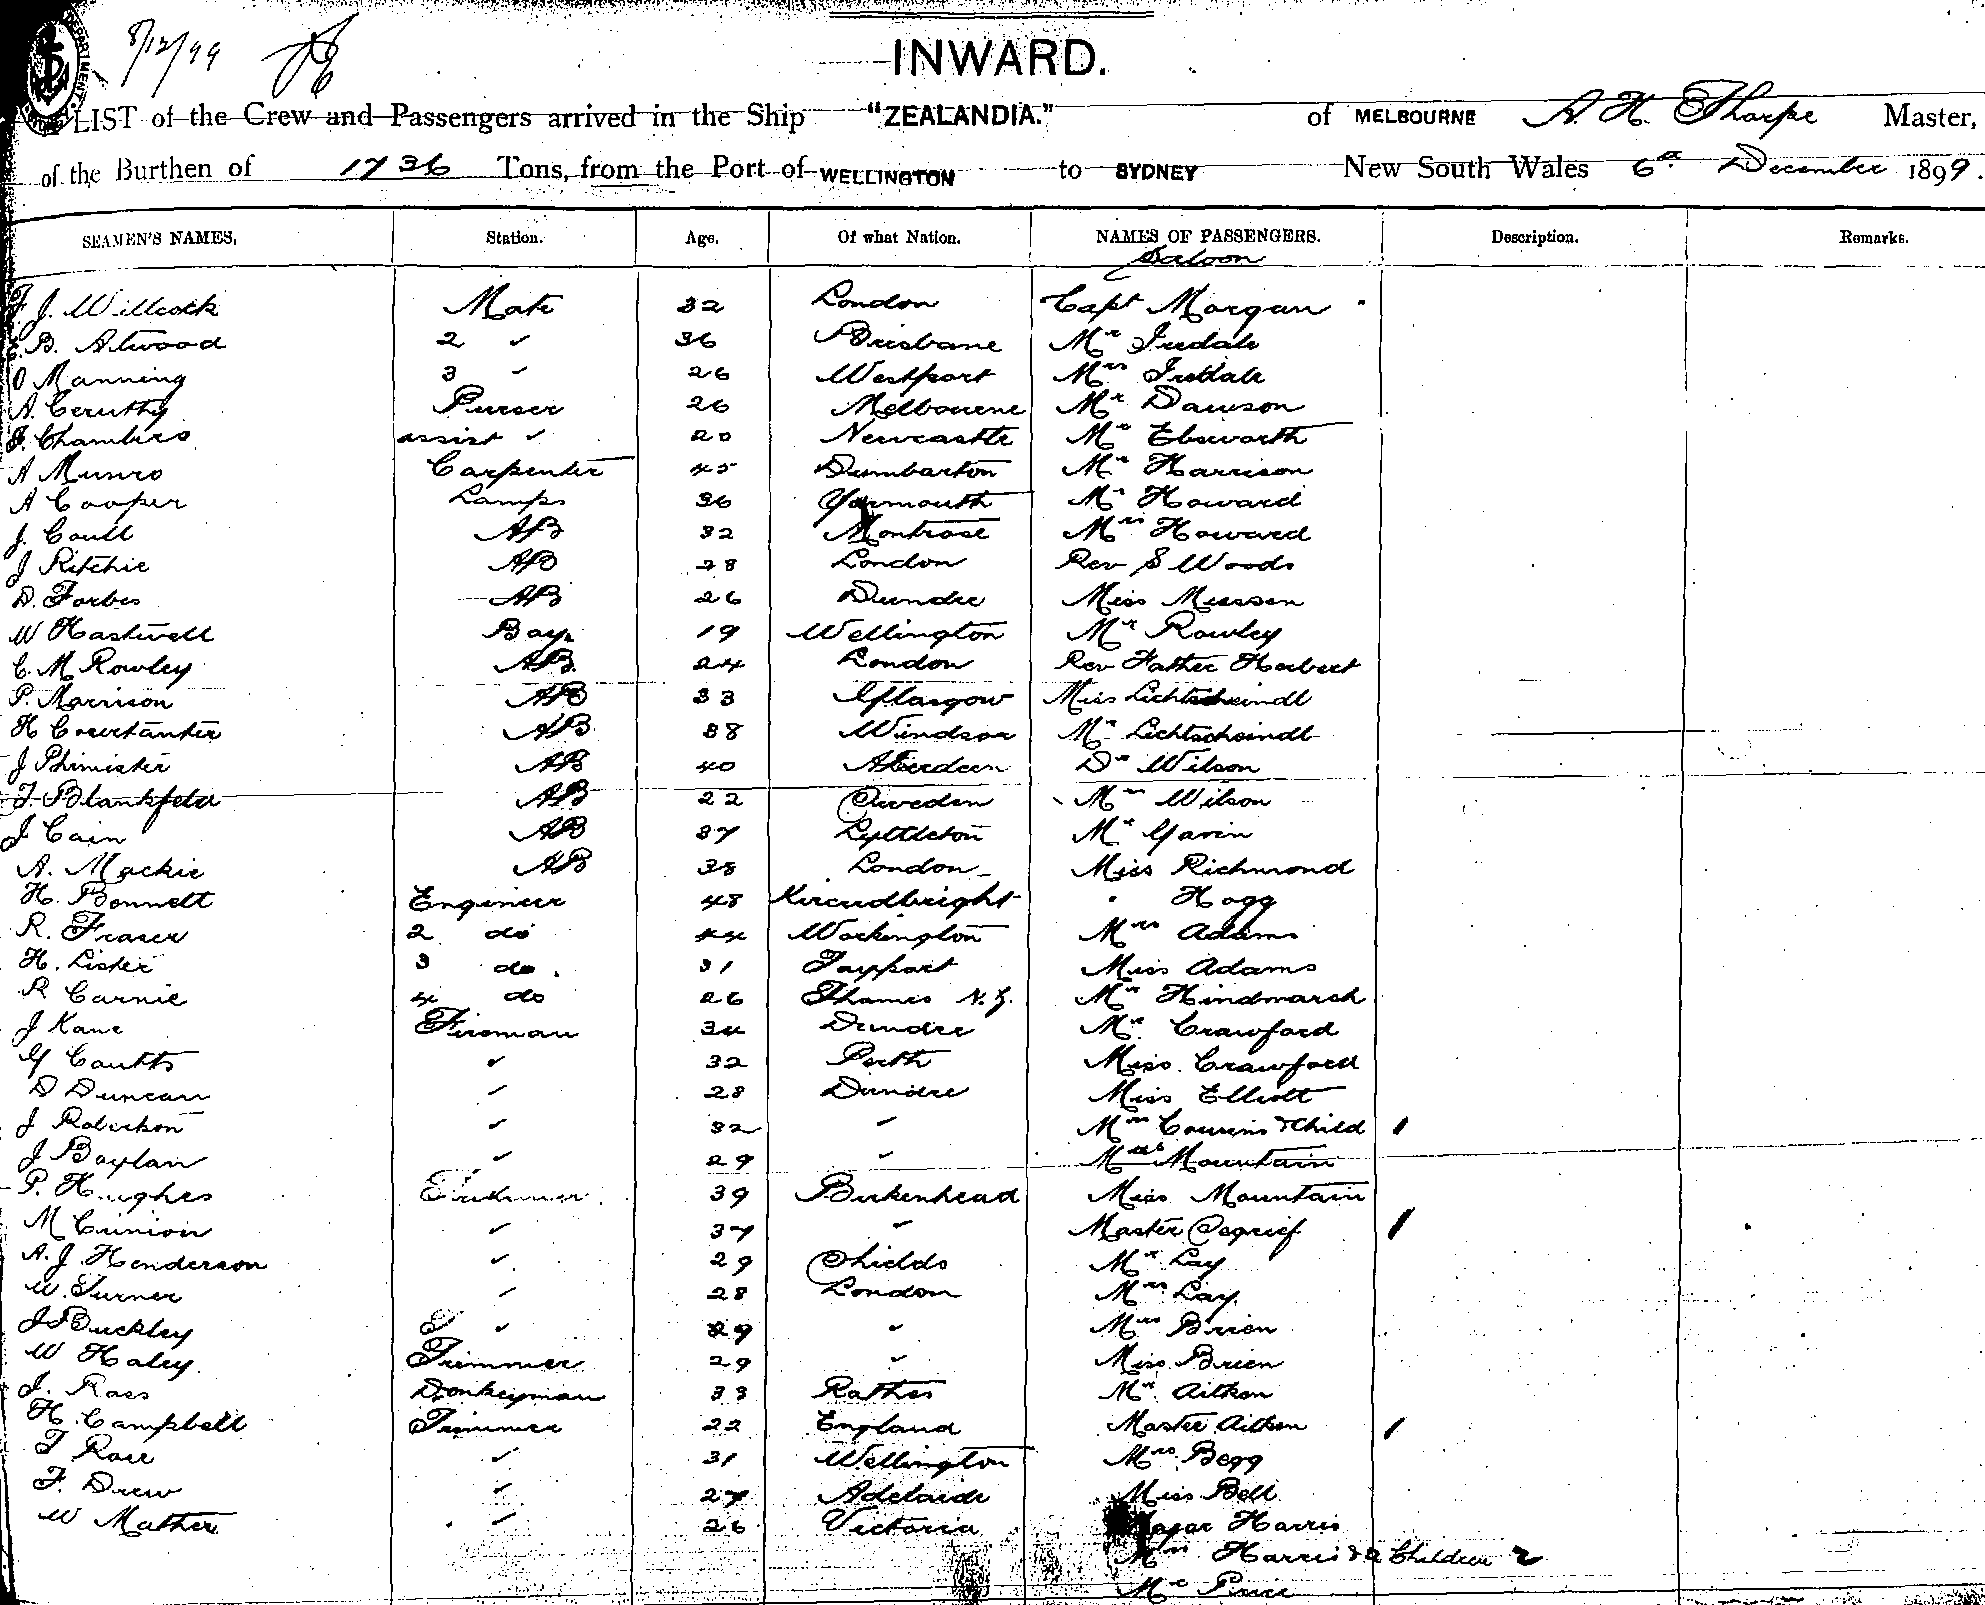 8/12/99
INWARD.
LIST of the Crew and Passengers arrived in the Ship "ZEALANDIA." of MELBOURNE A. H. Tharpe Master,
of the Burthen of 1736 Tons, from the Port of WELLINGTON to SYDNEY New South Wales 6th December 1899.
SEAMEN'S NAMES. Station. Age. Of what Nation. NAMES OF PASSENGERS. Description. Remarks.
Saloon
F J. Willcock Mate 32 London Capt Morgan
B. Atwood 2 " 36 Brisbane Mr Iredale
O Manning 3 " 26 Westport Mrs Iredale
A. Ceruthy Purser 26 Melbourne Mr Dawson
J. Chambers assist " 20 Newcastle Mr Ebsworth
A Munro Carpenter 45 Dumbarton Mr Harrison
A Cooper Lamps 36 Yarmouth Mr Howard
J. Coull AB 32 Montrose Mrs Howard
J Ritchie AB 28 London Rev S Woods
D. Forbes AB 26 Dundee Miss
W Hastwell Boy 19 Wellington Mr Rowley
C. M Rowley AB 24 London Rev Father Herbert
P. Morrison AB 33 Glasgow Miss Lichtscheindl
H AB 38 Windsor Mr Lichtscheindl
J Phimister AB 40 Aberdeen Dr Wilson
J. Blankfeld AB 22 Sweden Mrs Wilson
J Cain AB 37 Lyttleton Mr Gavin
A. Mackie AB 38 London Miss Richmond
H. Bennett Engineer 48 Kircudbright " Hogg
R. Fraser 2 do 44 Workington Mrs Adams
H. Lister 3 do. 31 Tayport Miss Adams
R Carnie 4 do 26 Thames N.Z. Mr Hindmarsh
J Kane Fireman 34 Dundee Mr. Crawford
G Coutts " 32 Perth Miss. Crawford
D Duncan " 28 Dundee Miss Elliott
J Robertson " 32 " Mrs Cousins & Child 1
J Boylan " 29 " Mrs Mountain
P. Hughes 39 Birkenhead Miss Mountain
M Cunion " 37 " Master Segrief 1
A. J. Henderson " 29 Shields Mr Lay
W. Turner " 28 London Mrs Lay.
J Buckley " 29 " Mrs Brien
W Haley. Trimmer 29 " Miss Brien
J. Ross Donkeyman 33 Mr. Aitken
H. Campbell Trimmer 22 England Master Aitken 1
T Rose " 31 Wellington Mrs Begg
F. Drew " 27 Adelaide Miss Bell
W Mather " 26 Victoria Major Harris
Mrs Harris & 2 Children 2
Mr Price